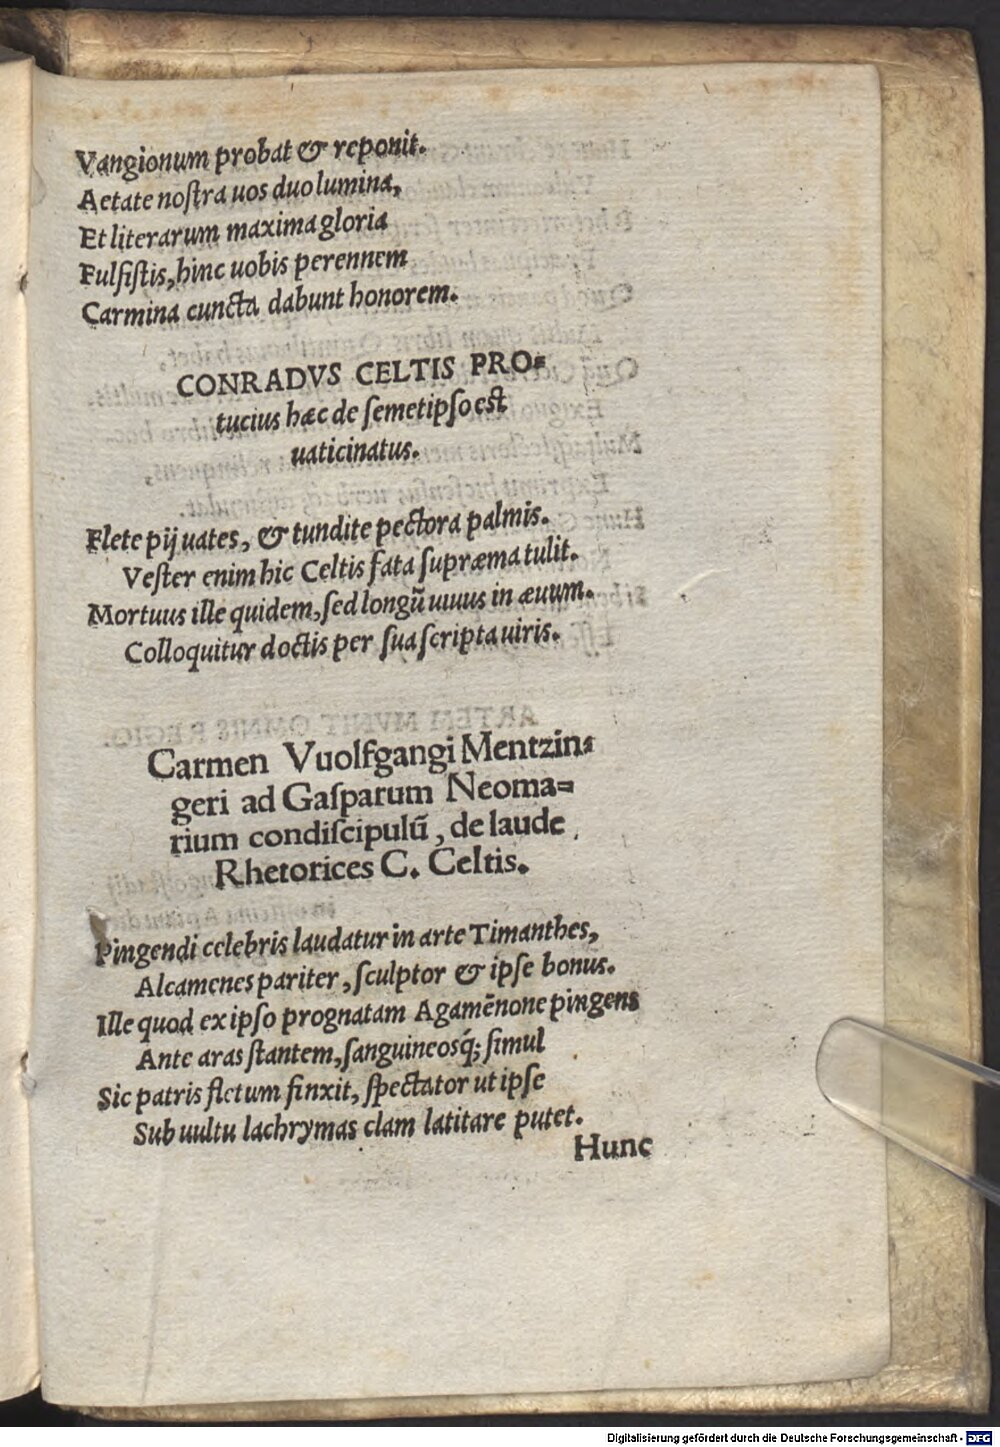 Vangionum probat & reponit.
Aetate noſtra uos duo lumina,
Et literarum maxima gloria
Fulſiſtis, hinc uobis perennem
Carmina cuncta dabunt honorem.
CONRADVS CELTIS PRO⸗
tucius hæc de ſemetipſo eſt
uaticinatus.
Flete pij uates, & tundite pectora palmis.
Veſter enim hic Celtis fata ſupræma tulit.
Mortuus ille quidem, ſed longũ uiuus in æuum.
Colloquitur doctis per ſua ſcripta uiris.
Carmen Vuolfgangi Mentzin⸗
geri ad Gaſparum Neoma⸗
rium condiſcipulũ, de laude
Rhetorices C. Celtis.
Pingendi celebris laudatur in arte Timanthes,
Alcamenes pariter, ſculptor & ipſe bonus.
Ille quod ex ipſo prognatam Agamẽnone pingens
Ante aras ſtantem, ſanguineosq́; ſimul
Sic patris fletum finxit, ſpectator ut ipſe
Sub uultu lachrymas clam latitare putet.
Hunc
Digitalisierung gefördert durch die Deutsche Forschungsgemeinschaft - DFG